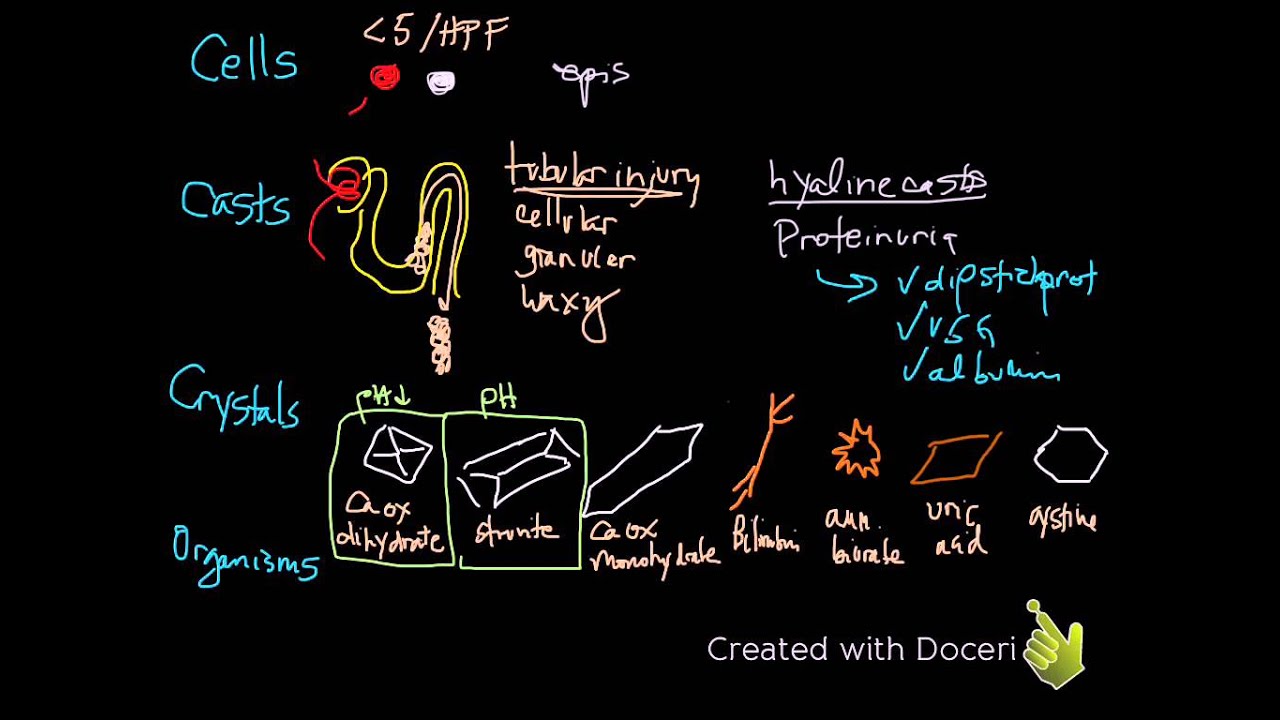 Cells
<5/HPF
epis
Casts
tubular injury
cellular
granular
waxy
hyaline casts
Proteinuria
✓ dipstick prot
✓ USG
✓ albumin
Crystals
pH↓
pH
Ca ox
dihydrate
struvite
Ca ox
monohydrate
Bilirubin
amm.
biurate
uric
acid
cystine
Organisms
Created with Doceri